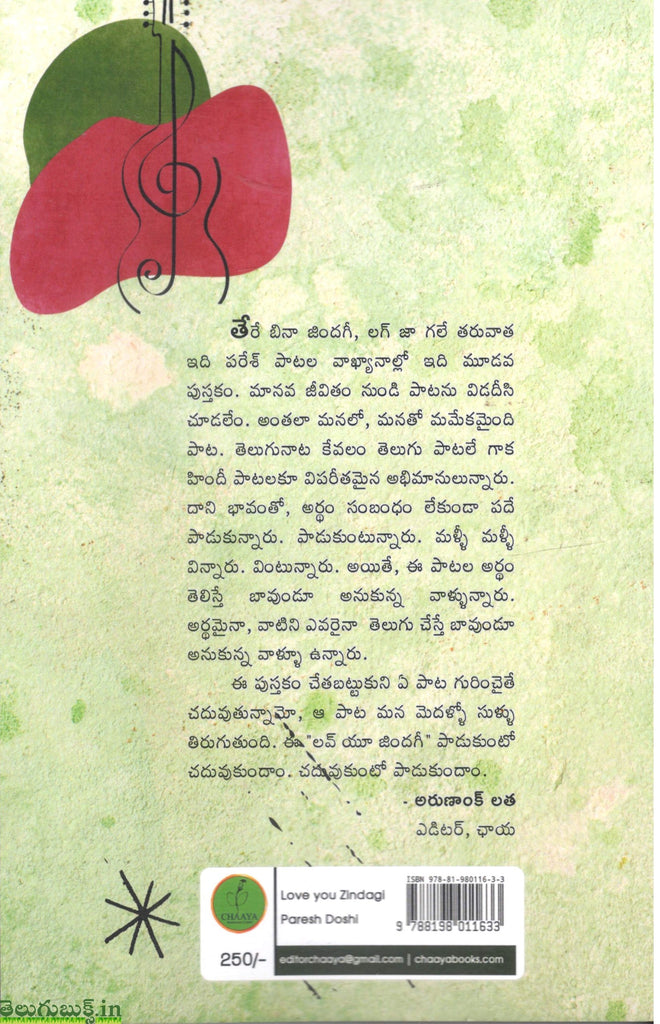 తేరే బినా జిందగీ, లగ్ జా గలే తరువాత
ఇది పరేశ్ పాటల వాఖ్యానాల్లో ఇది మూడవ
పుస్తకం. మానవ జీవితం నుండి పాటను విడదీసి
చూడలేం. అంతలా మనలో, మనతో మమేకమైంది
పాట. తెలుగునాట కేవలం తెలుగు పాటలే గాక
హిందీ పాటలకూ విపరీతమైన అభిమానులున్నారు.
దాని భావంతో, అర్థం సంబంధం లేకుండా పదే
పాడుకున్నారు. పాడుకుంటున్నారు. మళ్ళీ మళ్ళీ
విన్నారు. వింటున్నారు. అయితే, ఈ పాటల అర్థం
తెలిస్తే బావుండూ అనుకున్న వాళ్ళున్నారు.
అర్థమైనా, వాటిని ఎవరైనా తెలుగు చేస్తే బావుండూ
అనుకున్న వాళ్ళూ ఉన్నారు.
ఈ పుస్తకం చేతబట్టుకుని ఏ పాట గురించైతే
చదువుతున్నామో, ఆ పాట మన మెదళ్ళో సుళ్ళు
తిరుగుతుంది. ఈ "లవ్ యూ జిందగీ" పాడుకుంటో
చదువుకుందాం. చదువుకుంటో పాడుకుందాం.
- అరుణాంక్ లత
ఎడిటర్, ఛాయ
CHAAYA
250/-
Love you Zindagi
Paresh Doshi
ISBN 978-81-980116-3-3
9 788198 011633
editorchaaya@gmail.com | chaayabooks.com
తెలుగుబుక్స్.in